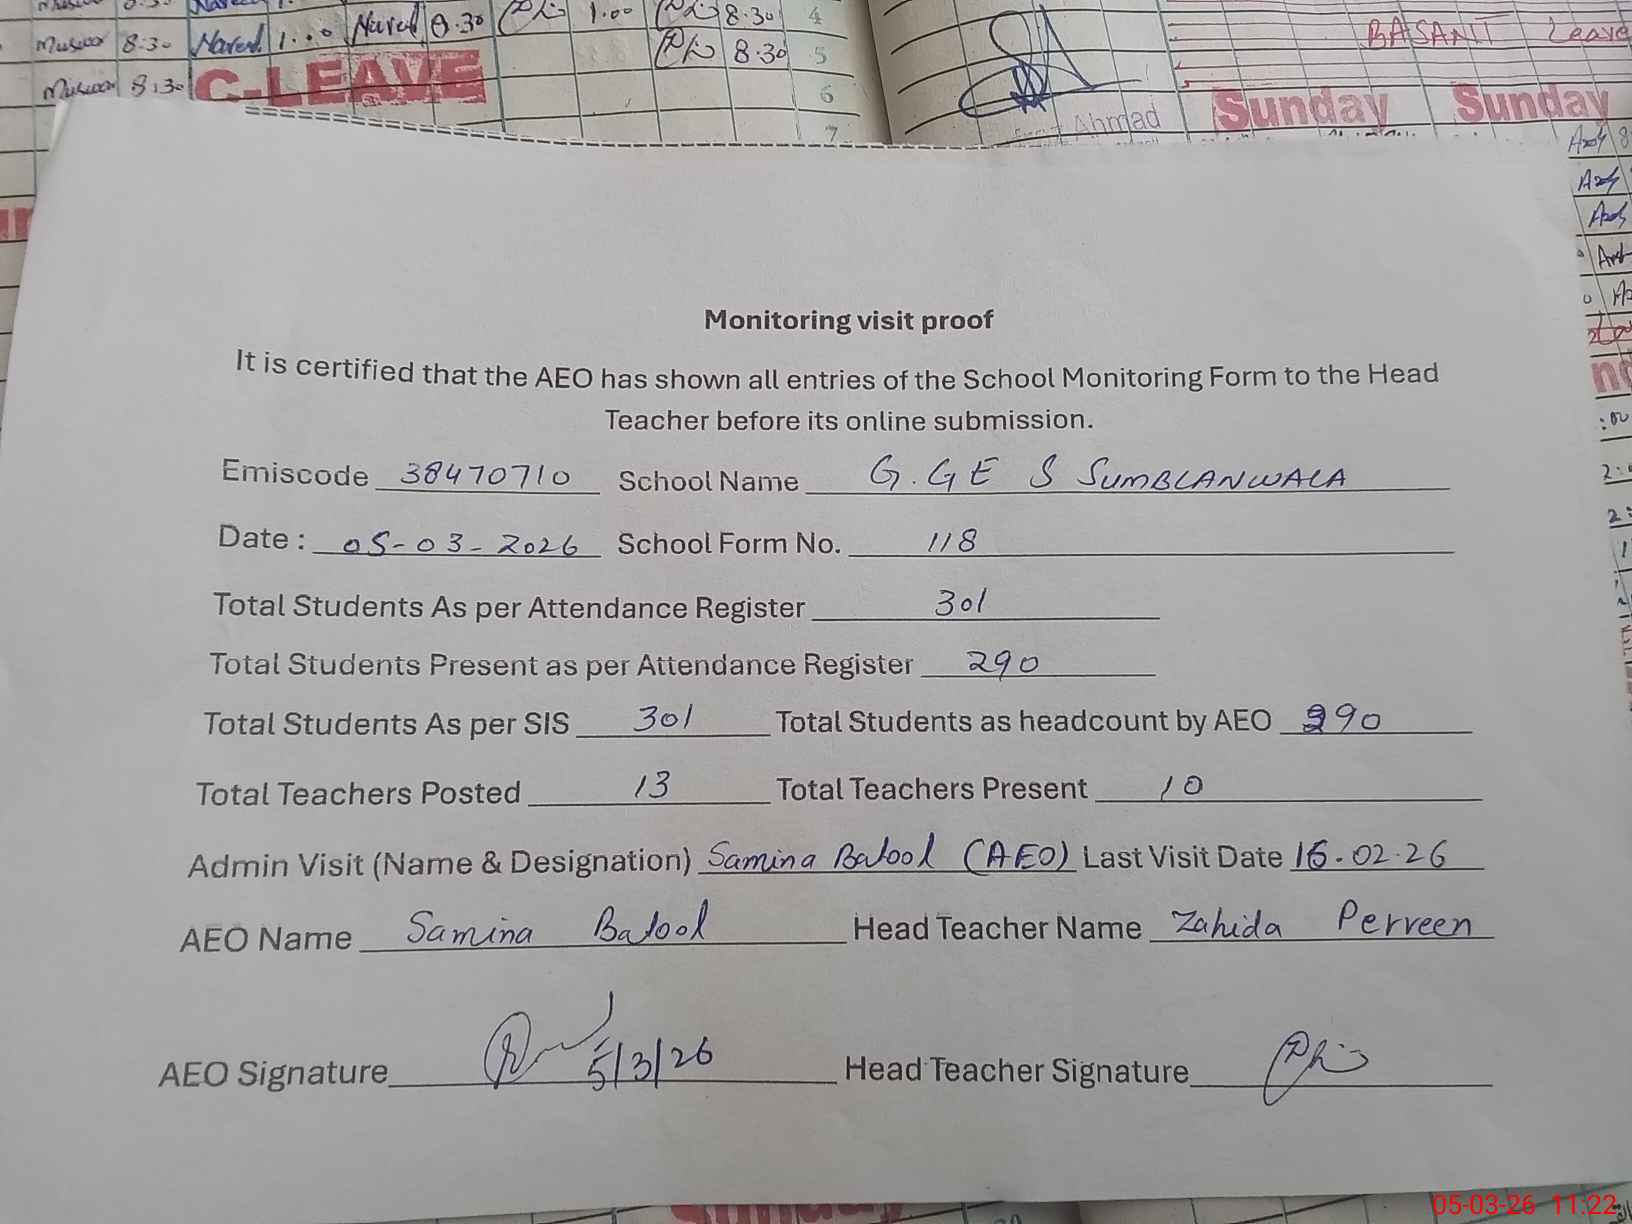 8:30 Naveed 1.00 Naveed 8.30 1.00 8.30 4
8:30 5
8:30 C-LEAVE 6
7
BASANT Leave
Sunday Sunday
Ahmad
Monitoring visit proof
It is certified that the AEO has shown all entries of the School Monitoring Form to the Head
Teacher before its online submission.
Emiscode 38470710 School Name G.GE S SUMBLANWALA
Date : 05-03-2026 School Form No. 118
Total Students As per Attendance Register 301
Total Students Present as per Attendance Register 290
Total Students As per SIS 301 Total Students as headcount by AEO 290
Total Teachers Posted 13 Total Teachers Present 10
Admin Visit (Name & Designation) Samina Batool (AEO) Last Visit Date 16.02.26
AEO Name Samina Batool Head Teacher Name Zahida Perveen
AEO Signature 5/3/26 Head Teacher Signature
Sunday
05-03-26 11:22